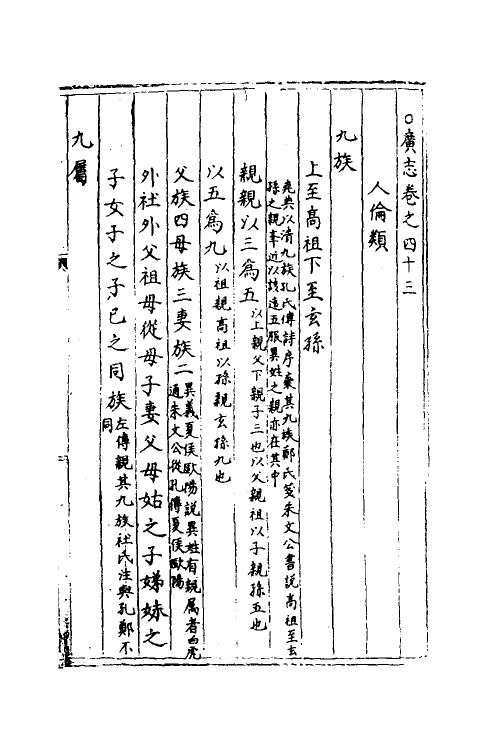 ○廣志卷之四十三
人倫類
九族
上至高祖下至玄孫
堯典以清九族孔氏傳詩序棄其九族鄭氏箋朱文公書說高祖至玄
孫之親奉近以該遠五服異姓之親亦在其中
親親以三爲五以上親父下親子三也以父親祖以子親孫五也
以五爲九以祖親高祖以孫親玄孫九也
父族四母族三妻族二異義夏侯歐陽說異姓有親屬者白虎
通朱文公從孔傳夏侯歐陽
外祖外父祖母從母子妻父母姑之子娣妹之
子女子之子已之同族左傳親其九族杜氏注與孔鄭不
同
九屬